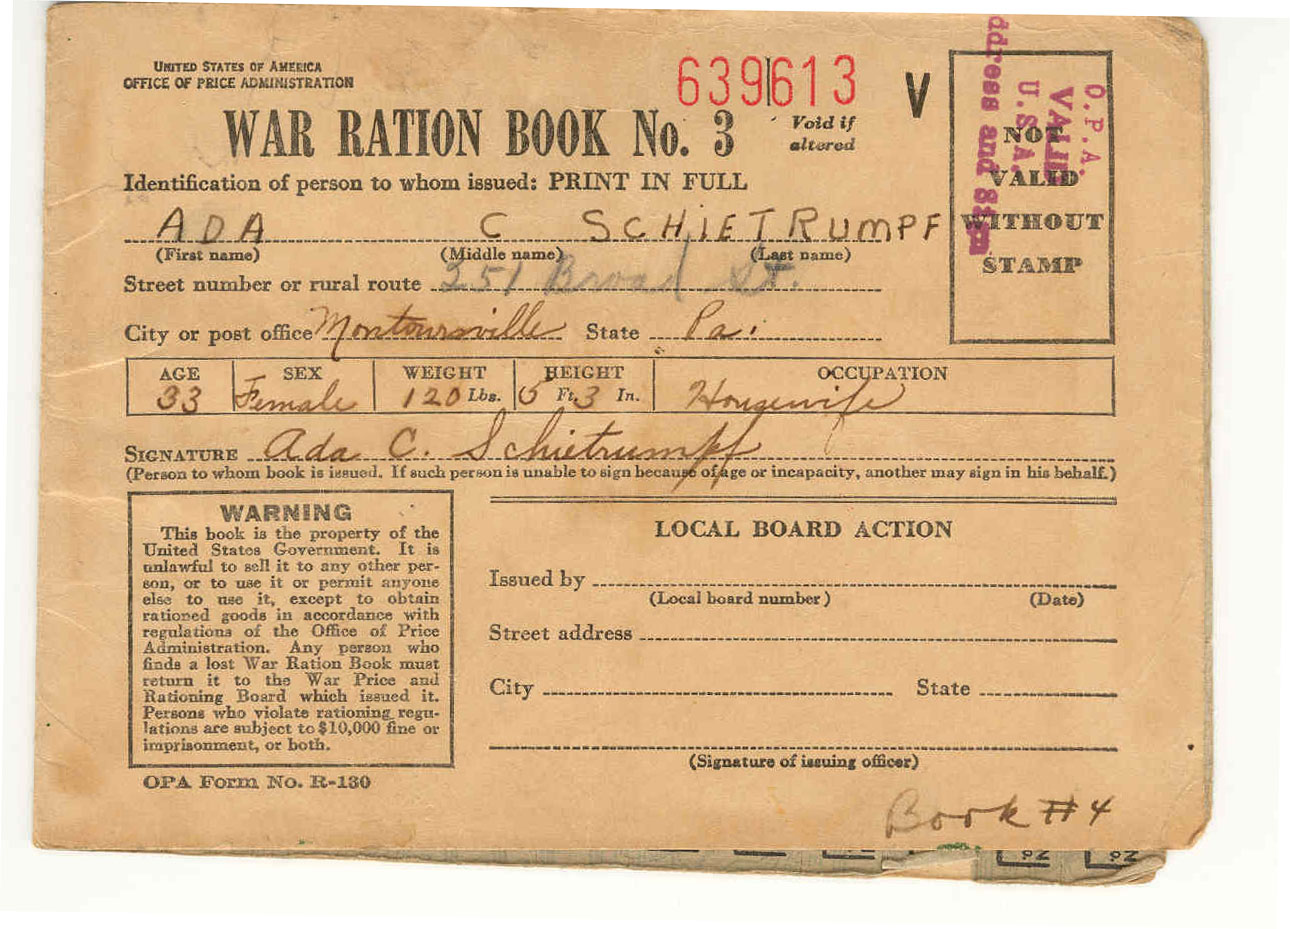 UNITED STATES OF AMERICA
OFFICE OF PRICE ADMINISTRATION
639613 V
WAR RATION BOOK No. 3
Void if
altered
Identification of person to whom issued: PRINT IN FULL
ADA C SCHIETRUMPF
(First name) (Middle name) (Last name)
Street number or rural route 251 Broad St.
City or post office Montoursville State Pa.
NOT
VALID
WITHOUT
STAMP
O.P.A.
VALID
U.S.A.
AGE SEX WEIGHT HEIGHT OCCUPATION
33 Female 120 Lbs. 5 Ft. 3 In. Housewife
SIGNATURE Ada C. Schietrumpf
(Person to whom book is issued. If such person is unable to sign because of age or incapacity, another may sign in his behalf.)
WARNING
This book is the property of the
United States Government. It is
unlawful to sell it to any other per-
son, or to use it or permit anyone
else to use it, except to obtain
rationed goods in accordance with
regulations of the Office of Price
Administration. Any person who
finds a lost War Ration Book must
return it to the War Price and
Rationing Board which issued it.
Persons who violate rationing regu-
lations are subject to $10,000 fine or
imprisonment, or both.
OPA Form No. R-130
LOCAL BOARD ACTION
Issued by
(Local board number) (Date)
Street address
City State
(Signature of issuing officer)
Book #4